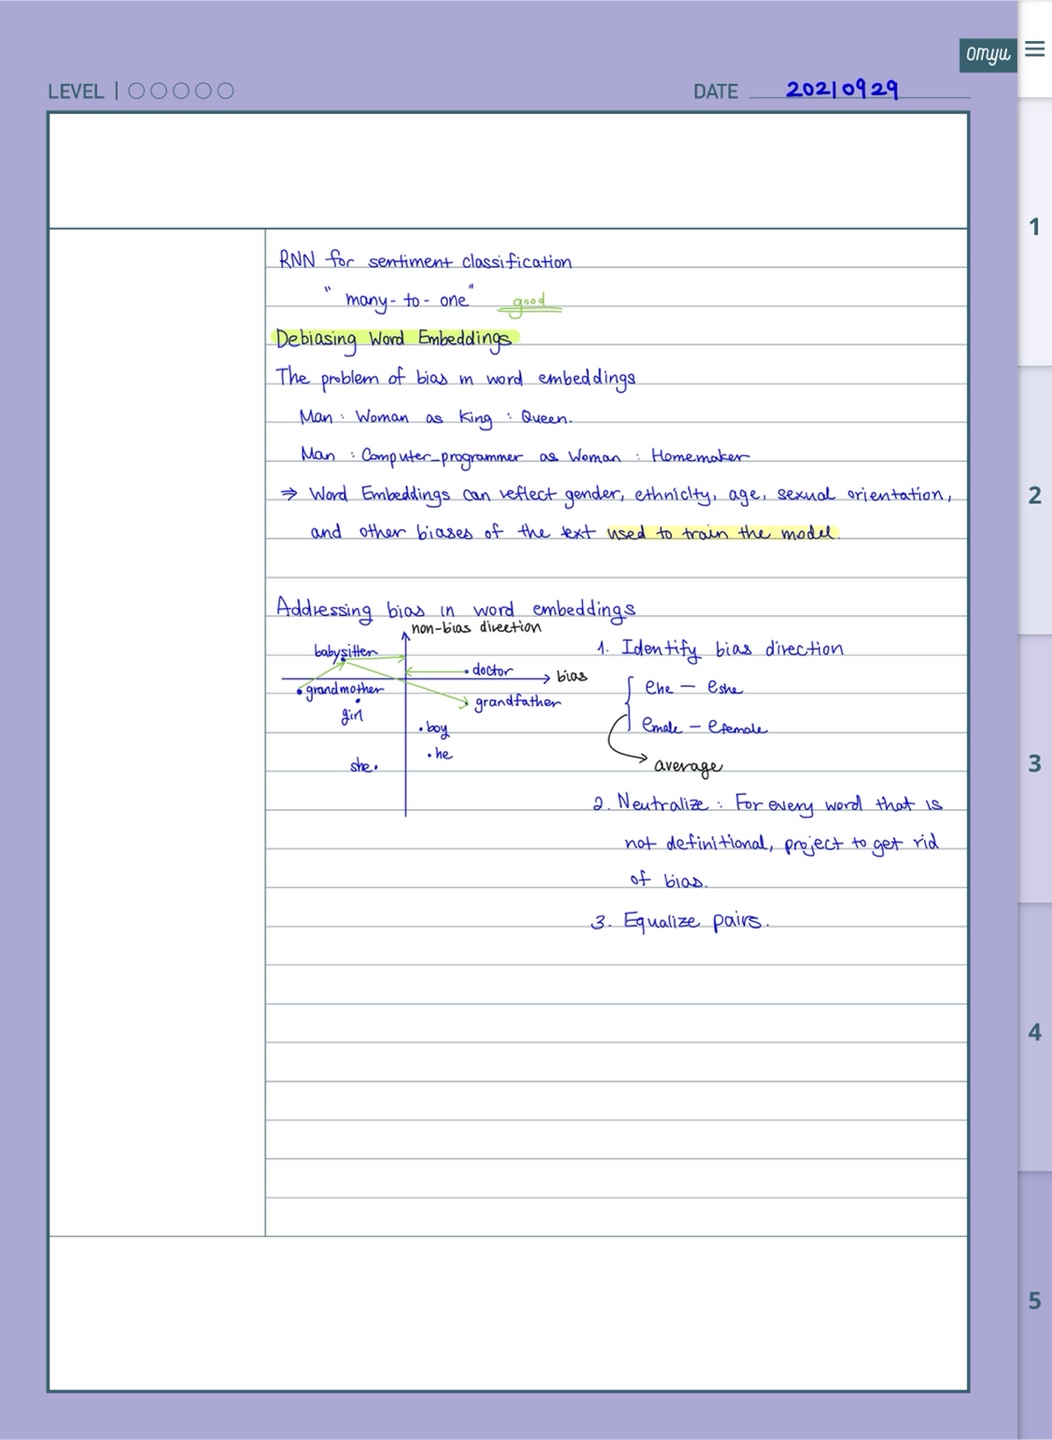 omyu
LEVEL
DATE 20210929
RNN for sentiment classification
"many-to-one" good
Debiasing Word Embeddings
The problem of bias in word embeddings
Man : Woman as King : Queen.
Man : Computer_programmer as Woman : Homemaker
⇒ Word Embeddings can reflect gender, ethnicity, age, sexual orientation,
and other biases of the text used to train the model.
Addressing bias in word embeddings
non-bias direction
babysitter
doctor
bias
grandmother
grandfather
girl
boy
he
she
1. Identify bias direction
{ ehe - eshe
emale - efemale
average
2. Neutralize : For every word that is
not definitional, project to get rid
of bias.
3. Equalize pairs.
1
2
3
4
5